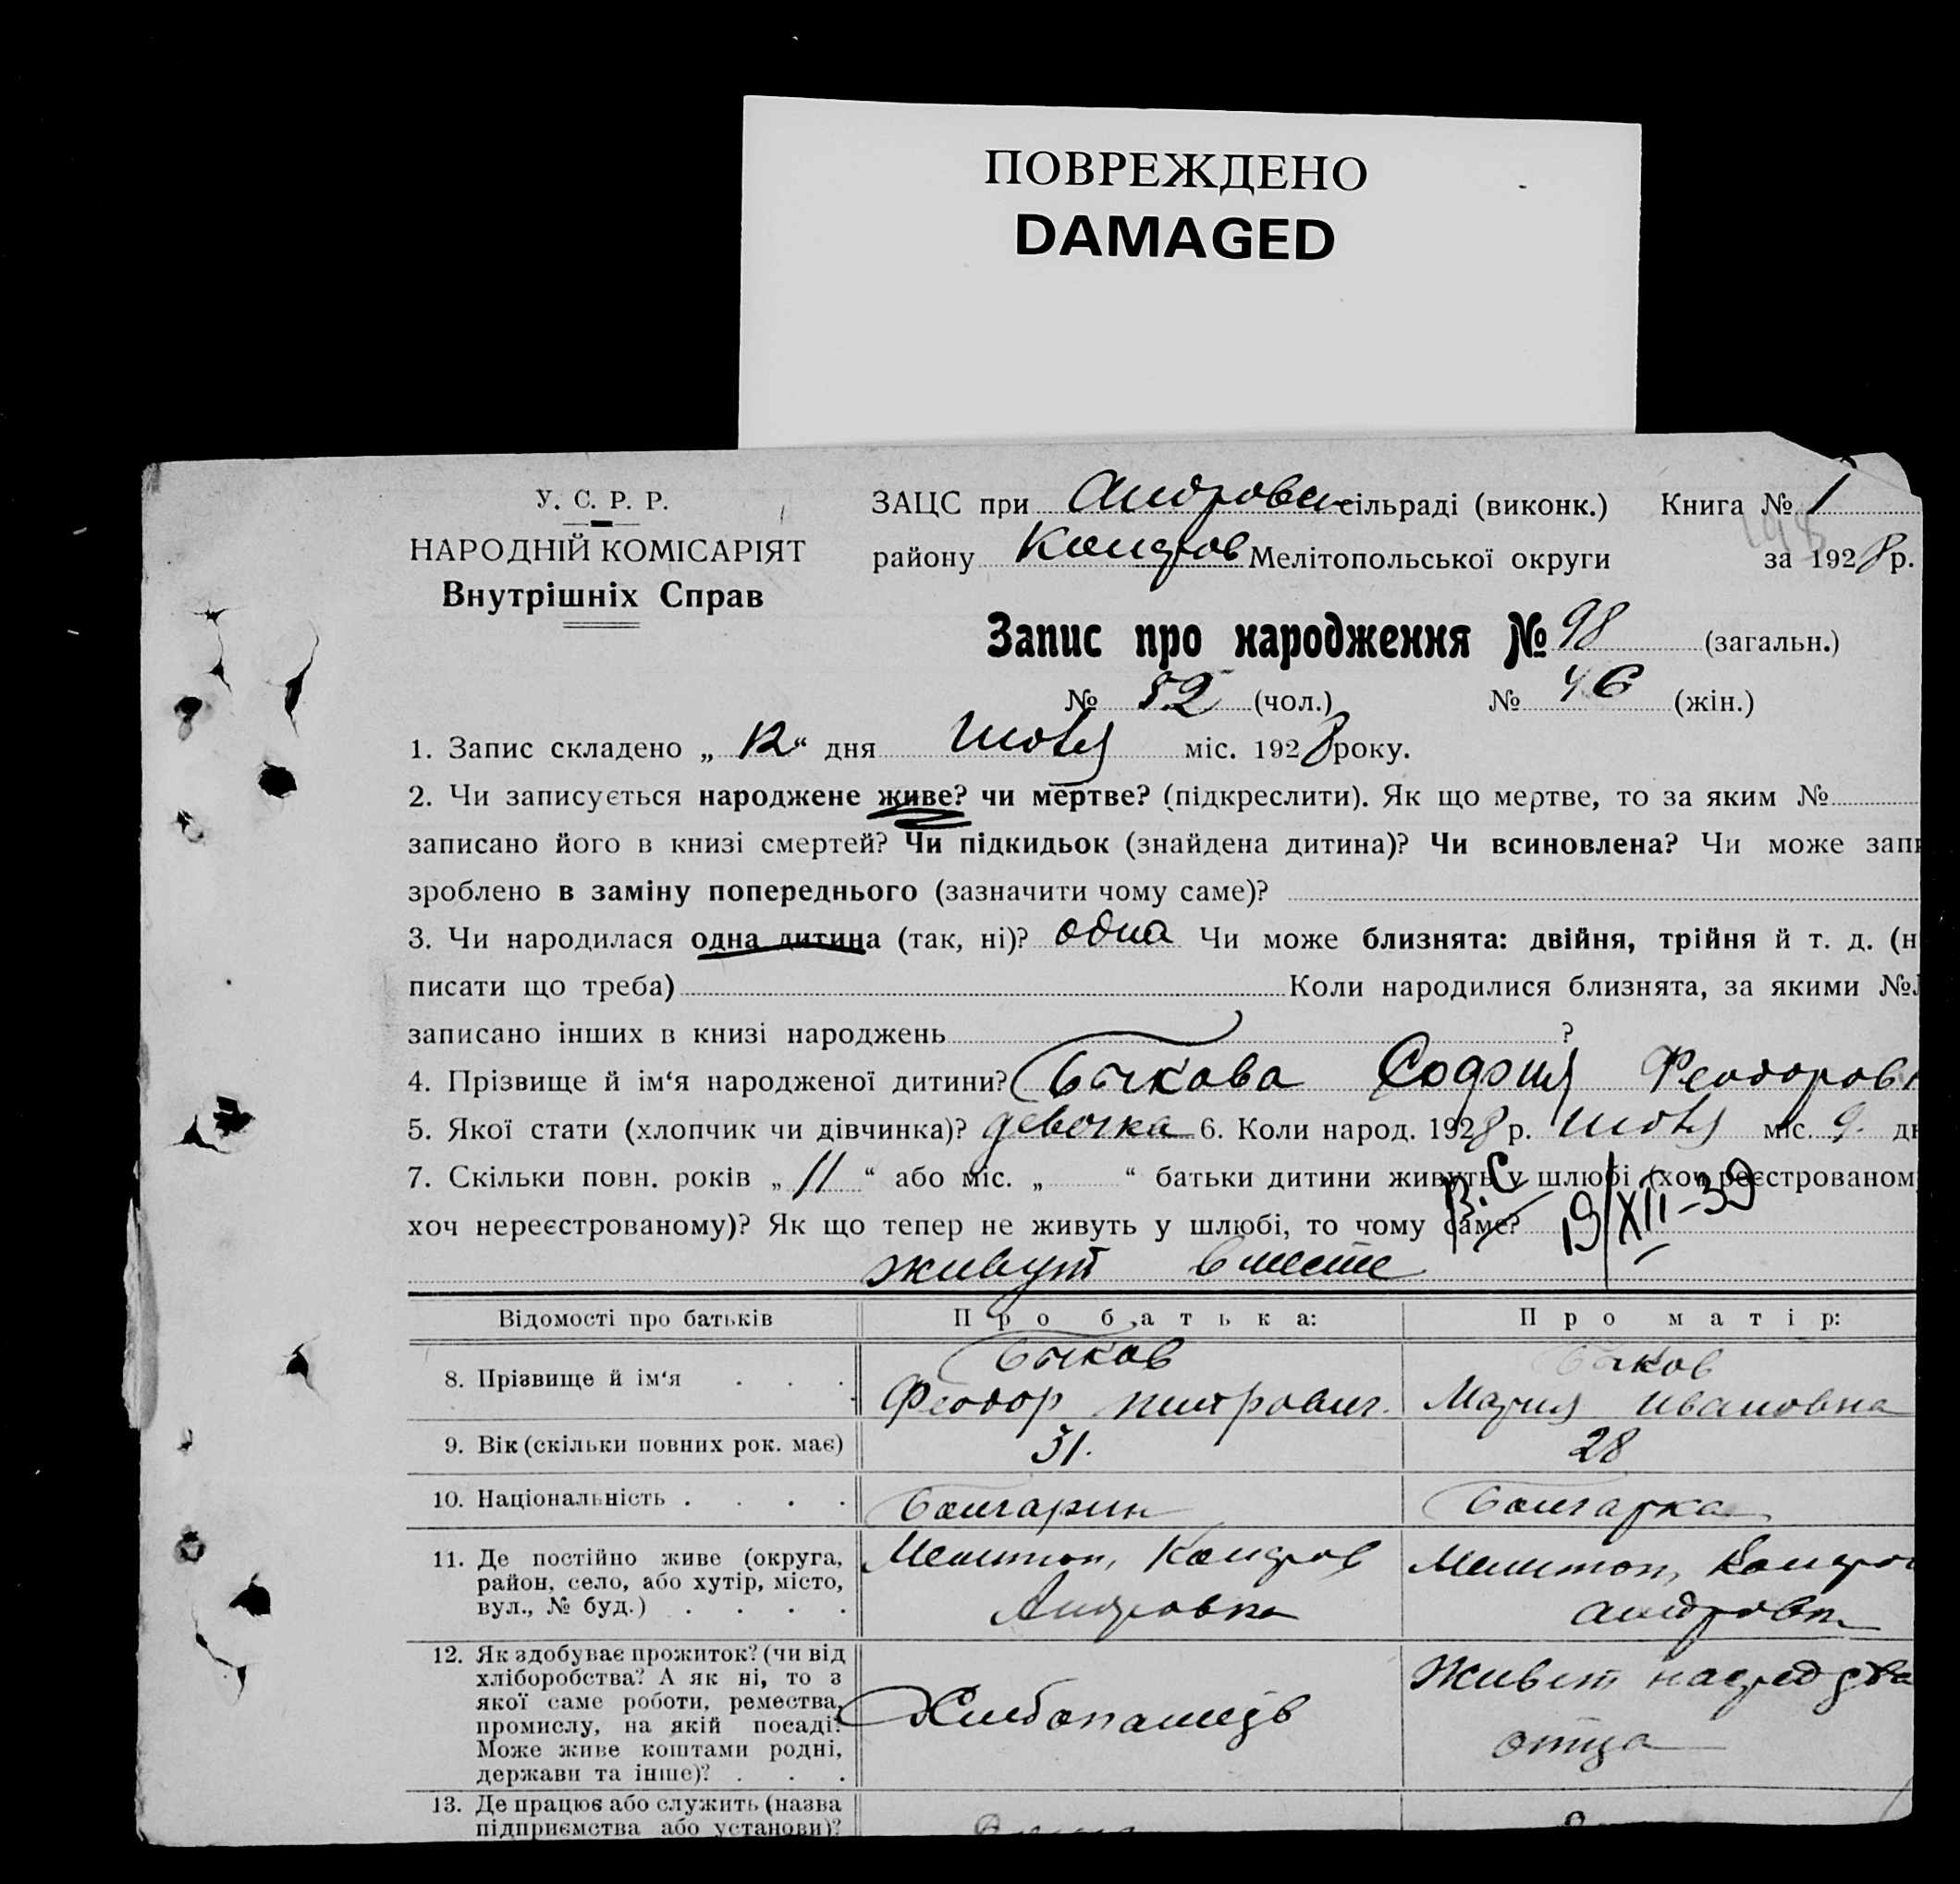 ПОВРЕЖДЕНО
DAMAGED
У. С. Р. Р.
НАРОДНІЙ КОМІСАРІЯТ
Внутрішніх Справ
ЗАЦС при Андровск сільраді (виконк.) Книга № 1
району Коларов Мелітопольської округи за 1928 р.
Запис про народження № 98 (загальн.)
№ 52 (чол.) № 46 (жін.)
1. Запис складено „ 12 “ дня июля міс. 1928 року.
2. Чи записується народжене живе? чи мертве? (підкреслити). Як що мертве, то за яким №
записано його в книзі смертей? Чи підкидьок (знайдена дитина)? Чи всиновлена? Чи може запи
зроблено в заміну попереднього (зазначити чому саме)?
3. Чи народилася одна дитина (так, ні)? одна Чи може близнята: двійня, трійня й т. д. (н
писати що треба) Коли народилися близнята, за якими №
записано інших в книзі народжень ?
4. Прізвище й ім‘я народженої дитини? Быкова София Феодоровн
5. Якої стати (хлопчик чи дівчинка)? девочка 6. Коли народ. 1928 р. июля міс. 9. дн
7. Скільки повн. років „ 11 “ або міс. „ “ батьки дитини живуть у шлюбі (хоч реєстрованом
хоч нереєстрованому)? Як що тепер не живуть у шлюбі, то чому саме? 19/XII-39
живут вместе
Відомості про батьків Про батька: Про матір:
8. Прізвище й ім‘я Быков Феодор Митрович. Быков Мария Ивановна
9. Вік (скільки повних рок. має) 31. 28
10. Національність Болгарин Болгарка
11. Де постійно живе (округа, район, село, або хутір, місто, вул., № буд.) Мелитоп, Коларов Андровка Мелитоп, Коларов Андровк
12. Як здобуває прожиток? (чи від хліборобства? А як ні, то з якої саме роботи, ремества, промислу, на якій посаді? Може живе коштами родні, держави та інше)? Хлебопашець Живет на средства отца
13. Де працює або служить (назва
підприємства або установи)?